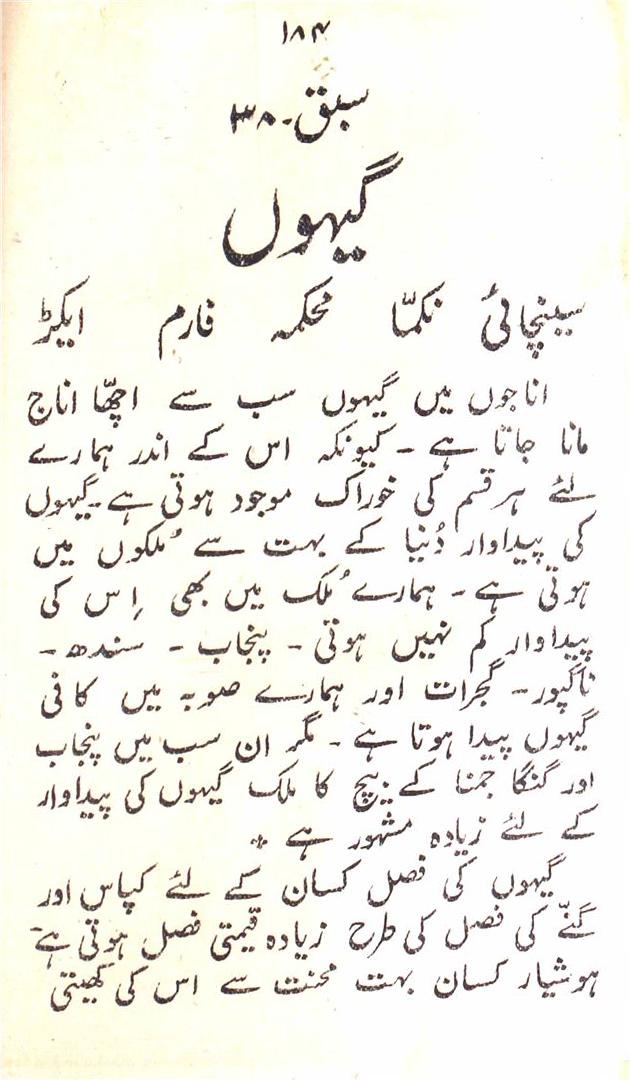 ۱۸۴
سبق ۔ ۳۸
گیہوں
سینچائی نکمّا محکمہ فارم ایکڑ
اناجوں میں گیہوں سب سے اچھّا اناج
مانا جاتا ہے ۔ کیونکہ اس کے اندر ہمارے
لئے ہر قسم کی خوراک موجود ہوتی ہے ۔ گیہوں
کی پیداوار دُنیا کے بہت سے مُلکوں میں
ہوتی ہے ۔ ہمارے مُلک میں بھی اِس کی
پیداوار کم نہیں ہوتی ۔ پنجاب ۔ سندھ ۔
ناگپور ۔ گجرات اور ہمارے صوبہ میں کافی
گیہوں پیدا ہوتا ہے ۔ مگر ان سب میں پنجاب
اور گنگا جمنا کے بیچ کا ملک گیہوں کی پیداوار
کے لئے زیادہ مشہور ہے *
گیہوں کی فصل کسان کے لئے کپاس اور
گنّے کی فصل کی طرح زیادہ قیمتی فصل ہوتی ہے ۔
ہوشیار کسان بہت محنت سے اس کی کھیتی